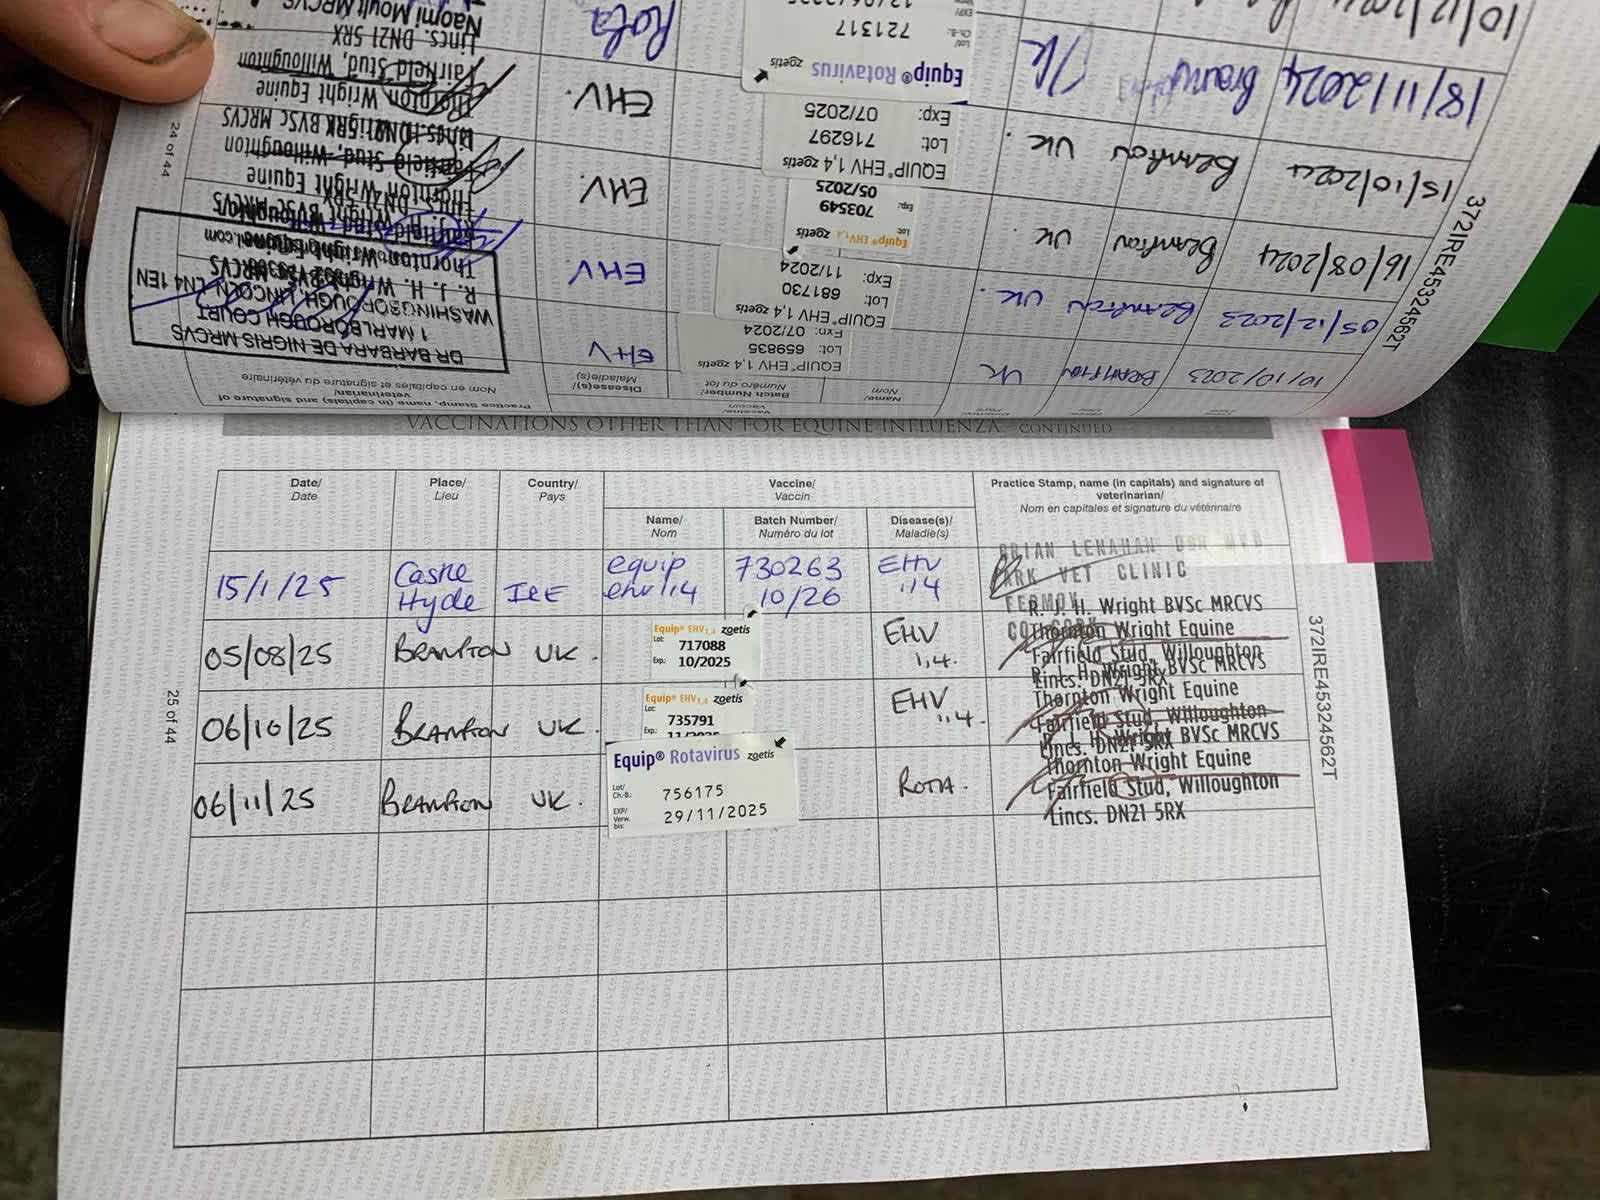 10/10/2023 BRAMPTON UK EQUIP® EHV 1,4 zoetis Lot: 659835 Exp: 07/2024 EHV
DR BARBARA DE NIGRIS MRCVS
1 MARLBOROUGH COURT
WASHINGBOROUGH, LINCOLN LN4 1EN
05/12/2023 BRAMPTON UK. EQUIP® EHV 1,4 zoetis Lot: 681730 Exp: 11/2024 EHV
R. J. H. Wright BVSc MRCVS
Thornton Wright Equine
16/08/2024 BRAMPTON UK. Equip® EHV1,4 zoetis Lot: 703549 Exp: 05/2025 EHV.
Thornton Wright Equine
Fairfield Stud, Willoughton
15/10/2024 BRAMPTON UK. EQUIP® EHV 1,4 zoetis Lot: 716297 Exp: 07/2025 EHV.
Thornton Wright Equine
Fairfield Stud, Willoughton
Lincs. DN21 5RX
18/11/2024 Equip® Rotavirus zoetis Lot/ Ch.-B.: 721317 Rota
Naomi Moult MRCVS
24 of 44
372IRE45324562T
VACCINATIONS OTHER THAN FOR EQUINE INFLUENZA - CONTINUED
Date/ Place/ Country/ Vaccine/ Practice Stamp, name (in capitals) and signature of
Date Lieu Pays Vaccin veterinarian/
Nom en capitales et signature du vétérinaire
Name/ Batch Number/ Disease(s)/
Nom Numéro du lot Maladie(s)
15/1/25 Castle Hyde IRE equip ehv 1,4 730263 10/26 EHV 1,4
BRIAN LENAHAN
PARK VET CLINIC
FERMOY
05/08/25 BRAMPTON UK. Equip® EHV1,4 zoetis Lot: 717088 Exp: 10/2025 EHV 1,4.
R. J. H. Wright BVSc MRCVS
Thornton Wright Equine
Fairfield Stud, Willoughton
Lincs. DN21 5RX
06/10/25 BRAMPTON UK. Equip® EHV1,4 zoetis Lot: 735791 Exp: EHV 1,4.
R. J. H. Wright BVSc MRCVS
Thornton Wright Equine
Fairfield Stud, Willoughton
Lincs. DN21 5RX
06/11/25 BRAMPTON UK. Equip® Rotavirus zoetis Lot/ Ch.-B.: 756175 EXP/ Verw. bis: 29/11/2025 ROTA.
Wright BVSc MRCVS
Thornton Wright Equine
Fairfield Stud, Willoughton
Lincs. DN21 5RX
25 of 44
372IRE45324562T